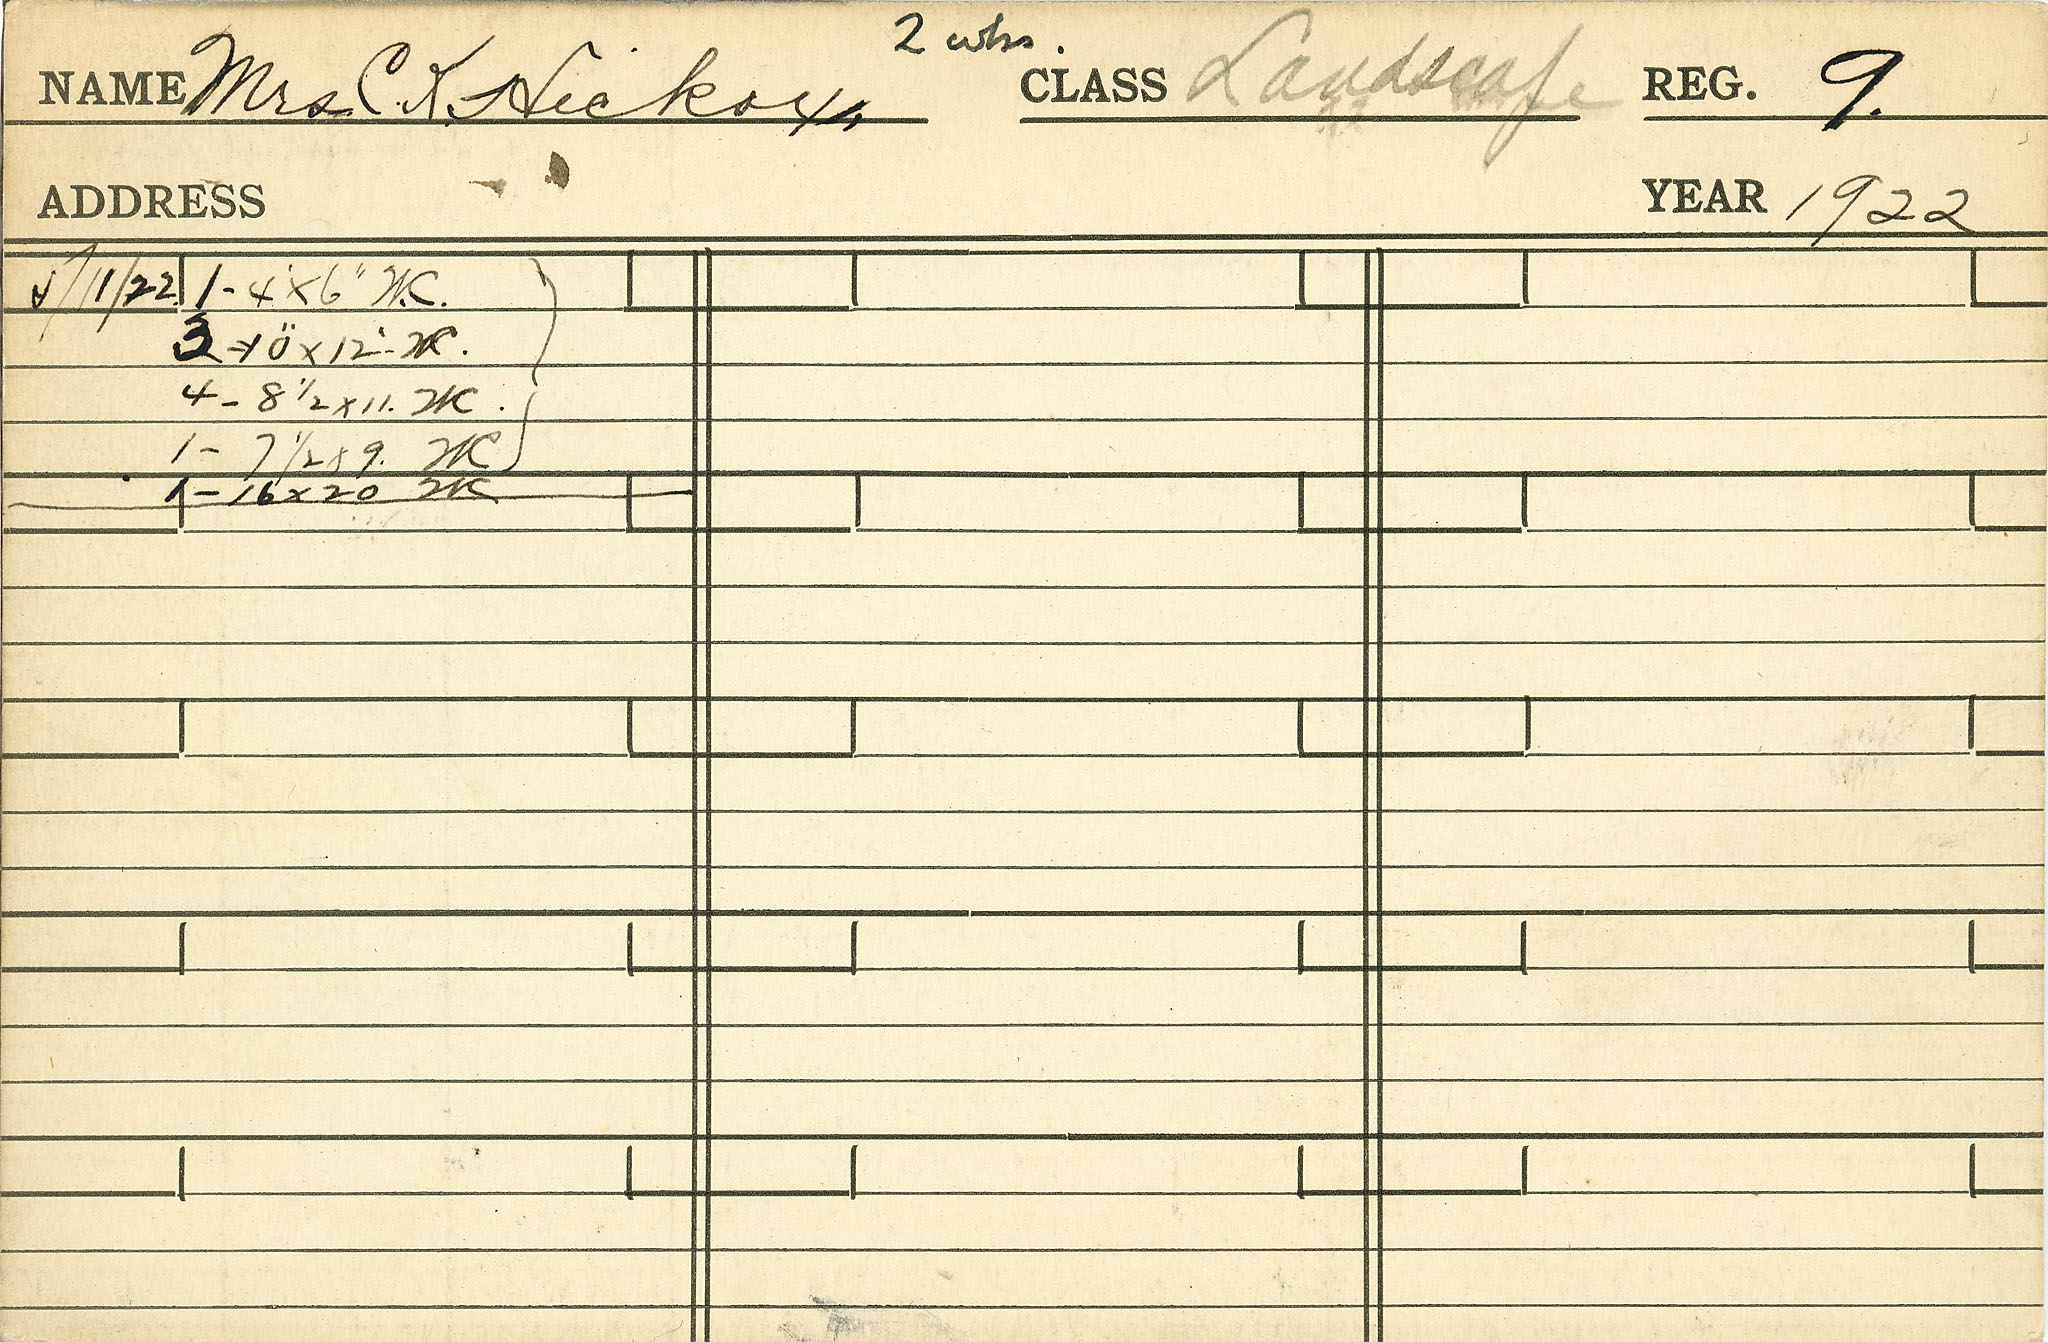 2 wks.
NAME Mrs. C. K. Hickox CLASS Landscape REG. 9.
ADDRESS YEAR 1922
5/11/22 1 - 4" x 6" W.C.
3 - 10" x 12" W.C.
4 - 8 1/2 x 11. W.C.
1 - 7 1/2 x 9. W.C.
1 - 16 x 20 W.C.